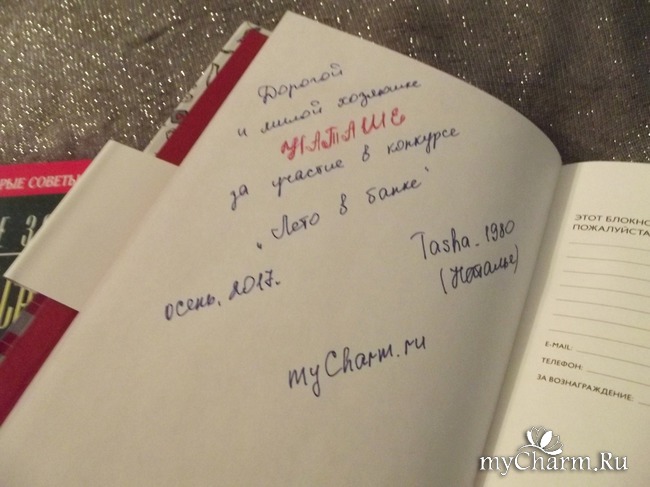 Дорогой
и милой хозяюшке
НАТАШЕ
за участие в конкурсе
"Лето в банке"
осень, 2017г.
Tasha.1980
(Наталья)
myCharm.ru
РЫЕ СОВЕТЫ
Е ЗО
ЭТОТ БЛОКНО
ПОЖАЛУЙСТА
E-MAIL:
ТЕЛЕФОН:
ЗА ВОЗНАГРАЖДЕНИЕ:
myCharm.Ru